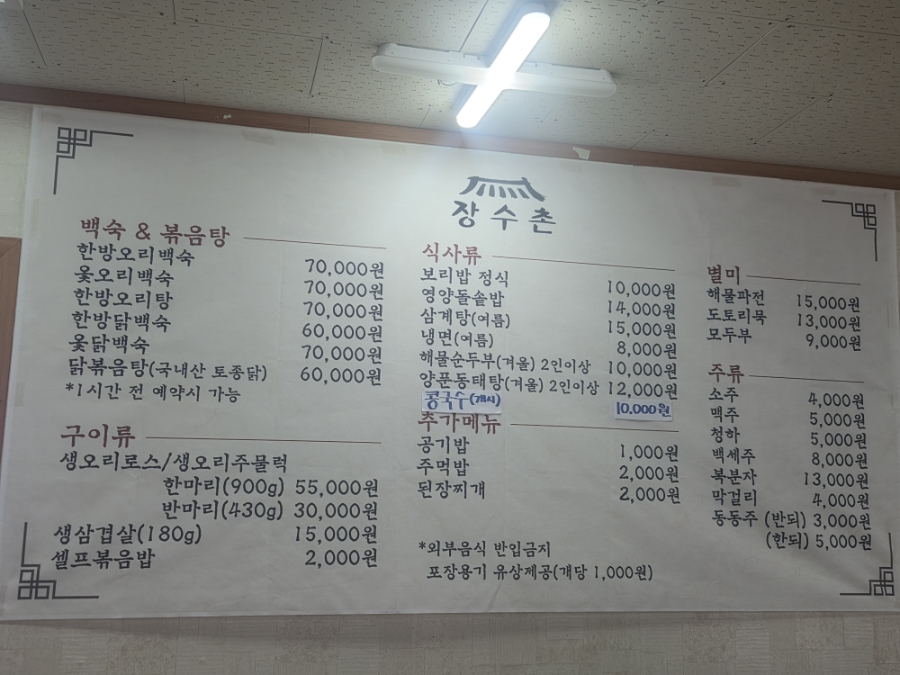 장수촌
백숙 & 볶음탕
한방오리백숙 70,000원
옻오리백숙 70,000원
한방오리탕 70,000원
한방닭백숙 60,000원
옻닭백숙 70,000원
닭볶음탕(국내산 토종닭) 60,000원
*1시간 전 예약시 가능
구이류
생오리로스/생오리주물럭
한마리(900g) 55,000원
반마리(430g) 30,000원
생삼겹살(180g) 15,000원
셀프볶음밥 2,000원
식사류
보리밥 정식 10,000원
영양돌솥밥 14,000원
삼계탕(여름) 15,000원
냉면(여름) 8,000원
해물순두부(겨울) 2인이상 10,000원
양푼동태탕(겨울) 2인이상 12,000원
콩국수(개시) 10.000원
추가메뉴
공기밥 1,000원
주먹밥 2,000원
된장찌개 2,000원
*외부음식 반입금지
포장용기 유상제공(개당 1,000원)
별미
해물파전 15,000원
도토리묵 13,000원
모두부 9,000원
주류
소주 4,000원
맥주 5,000원
청하 5,000원
백세주 8,000원
복분자 13,000원
막걸리 4,000원
동동주 (반되) 3,000원
(한되) 5,000원